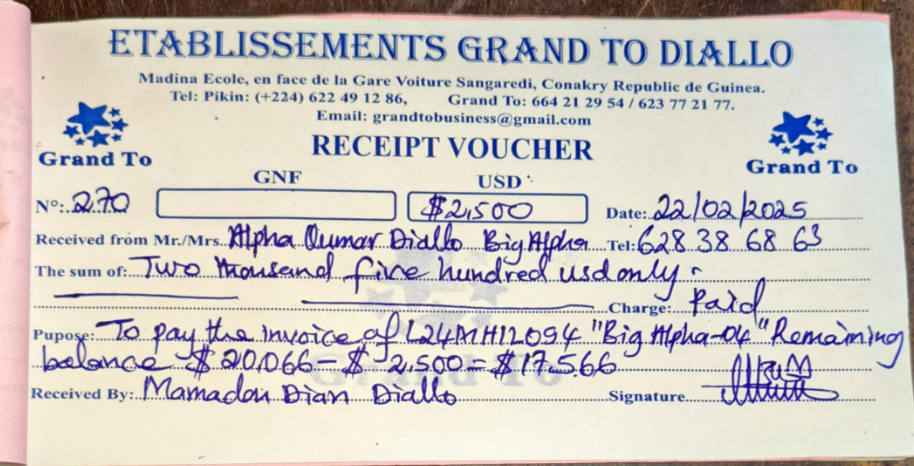 ETABLISSEMENTS GRAND TO DIALLO
Madina Ecole, en face de la Gare Voiture Sangaredi, Conakry Republic de Guinea.
Tel: Pikin: (+224) 622 49 12 86, Grand To: 664 21 29 54 / 623 77 21 77.
Email: grandtobusiness@gmail.com
Grand To
RECEIPT VOUCHER
Grand To
GNF
USD
N°: 270
$2,500
Date: 22/02/2025
Received from Mr./Mrs. Alpha Oumar Diallo Big Alpha Tel: 628 38 68 63
The sum of: Two thousand five hundred usd only
Charge: Paid
Pupose: To pay the invoice of L24MH12094 "Big Alpha-04" Remaining
balance $20,066 - $ 2,500 = $17,566
Received By: Mamadou Dian Diallo
Signature